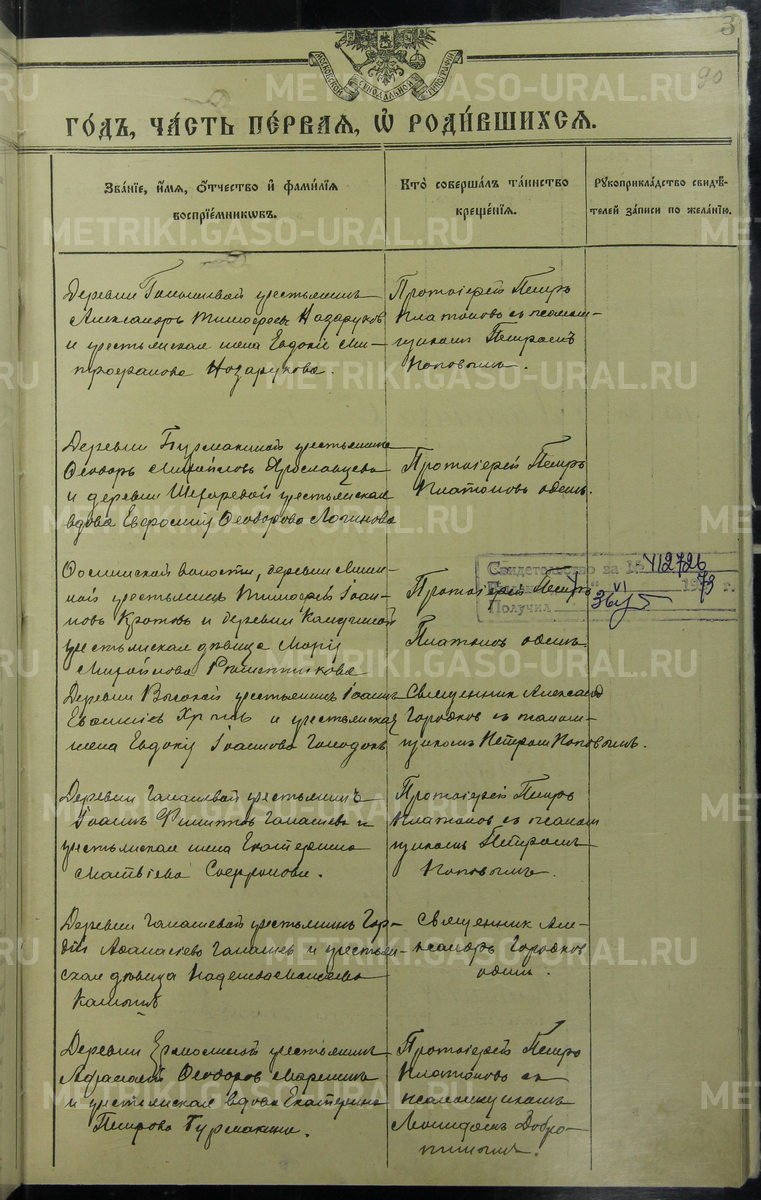 3
90
МОСКОВСКОЙ СѴНОДАЛЬНОЙ ТИПОГРАФІИ
ГО́ДЪ, ЧА́СТЬ ПЕ́РВАЯ, Ѡ҆ РОДИ́ВШИХСЯ.
Зва́нїе, и҆́мя, ѻ҆́тчество и҆ фами́лїя
воспрїе́мникѡвъ.
Кто̀ соверша́лъ та́инство
креще́нїя.
Рꙋкоприкла́дство свидѣ́-
телей за́писи по жела́нїю.
Деревни крестьянинъ
Александръ Тимофеевъ Назаруковъ
и крестьянская жена Евдокія Ми-
трофанова Назарукова.
Протоіерей Петръ
Платоновъ съ псалом-
щикомъ Петромъ
Поповымъ.
Деревни Бурмакиной крестьянинъ
Ѳеодоръ Михайловъ Ярославцевъ
и деревни крестьянская
вдова Евфросинія Ѳеодорова Логинова
Протоіерей Петръ
Платоновъ одинъ.
волости, деревни
крестьянинъ Тимофей Іоан-
новъ Кротовъ и деревни
крестьянская дѣвица Марія
Михайлова
Протоіерей Петръ
Платоновъ одинъ
Свидетельство за № 412726
VI 1973 г.
Получил
Деревни Высокой крестьянинъ Іоаннъ
и крестьянская
жена Евдокія Іоаннова
Священникъ Александръ
Городковъ съ псалом-
щикомъ Петромъ Поповымъ.
Деревни Галашевой крестьянинъ
Іоаннъ Филипповъ Галашевъ и
крестьянская жена Екатерина
Матвѣева Софронова.
Протоіерей Петръ
Платоновъ съ псалом
щикомъ Петромъ
Поповымъ.
Деревни Галашевой крестьянинъ Гор-
дій Аѳанасіевъ Галашевъ и крестьян-
ская дѣвица Надежда Моисеева
Священникъ Але-
ксандръ Городковъ
одинъ.
Деревни Ермолиной крестьянинъ
Аѳанасій Ѳеодоровъ
и крестьянская вдова Екатерина
Петрова Бурмакина.
Протоіерей Петръ
Платоновъ съ
псаломщикомъ
Леонидомъ Добро-
METRIKI.GASO-URAL.RU